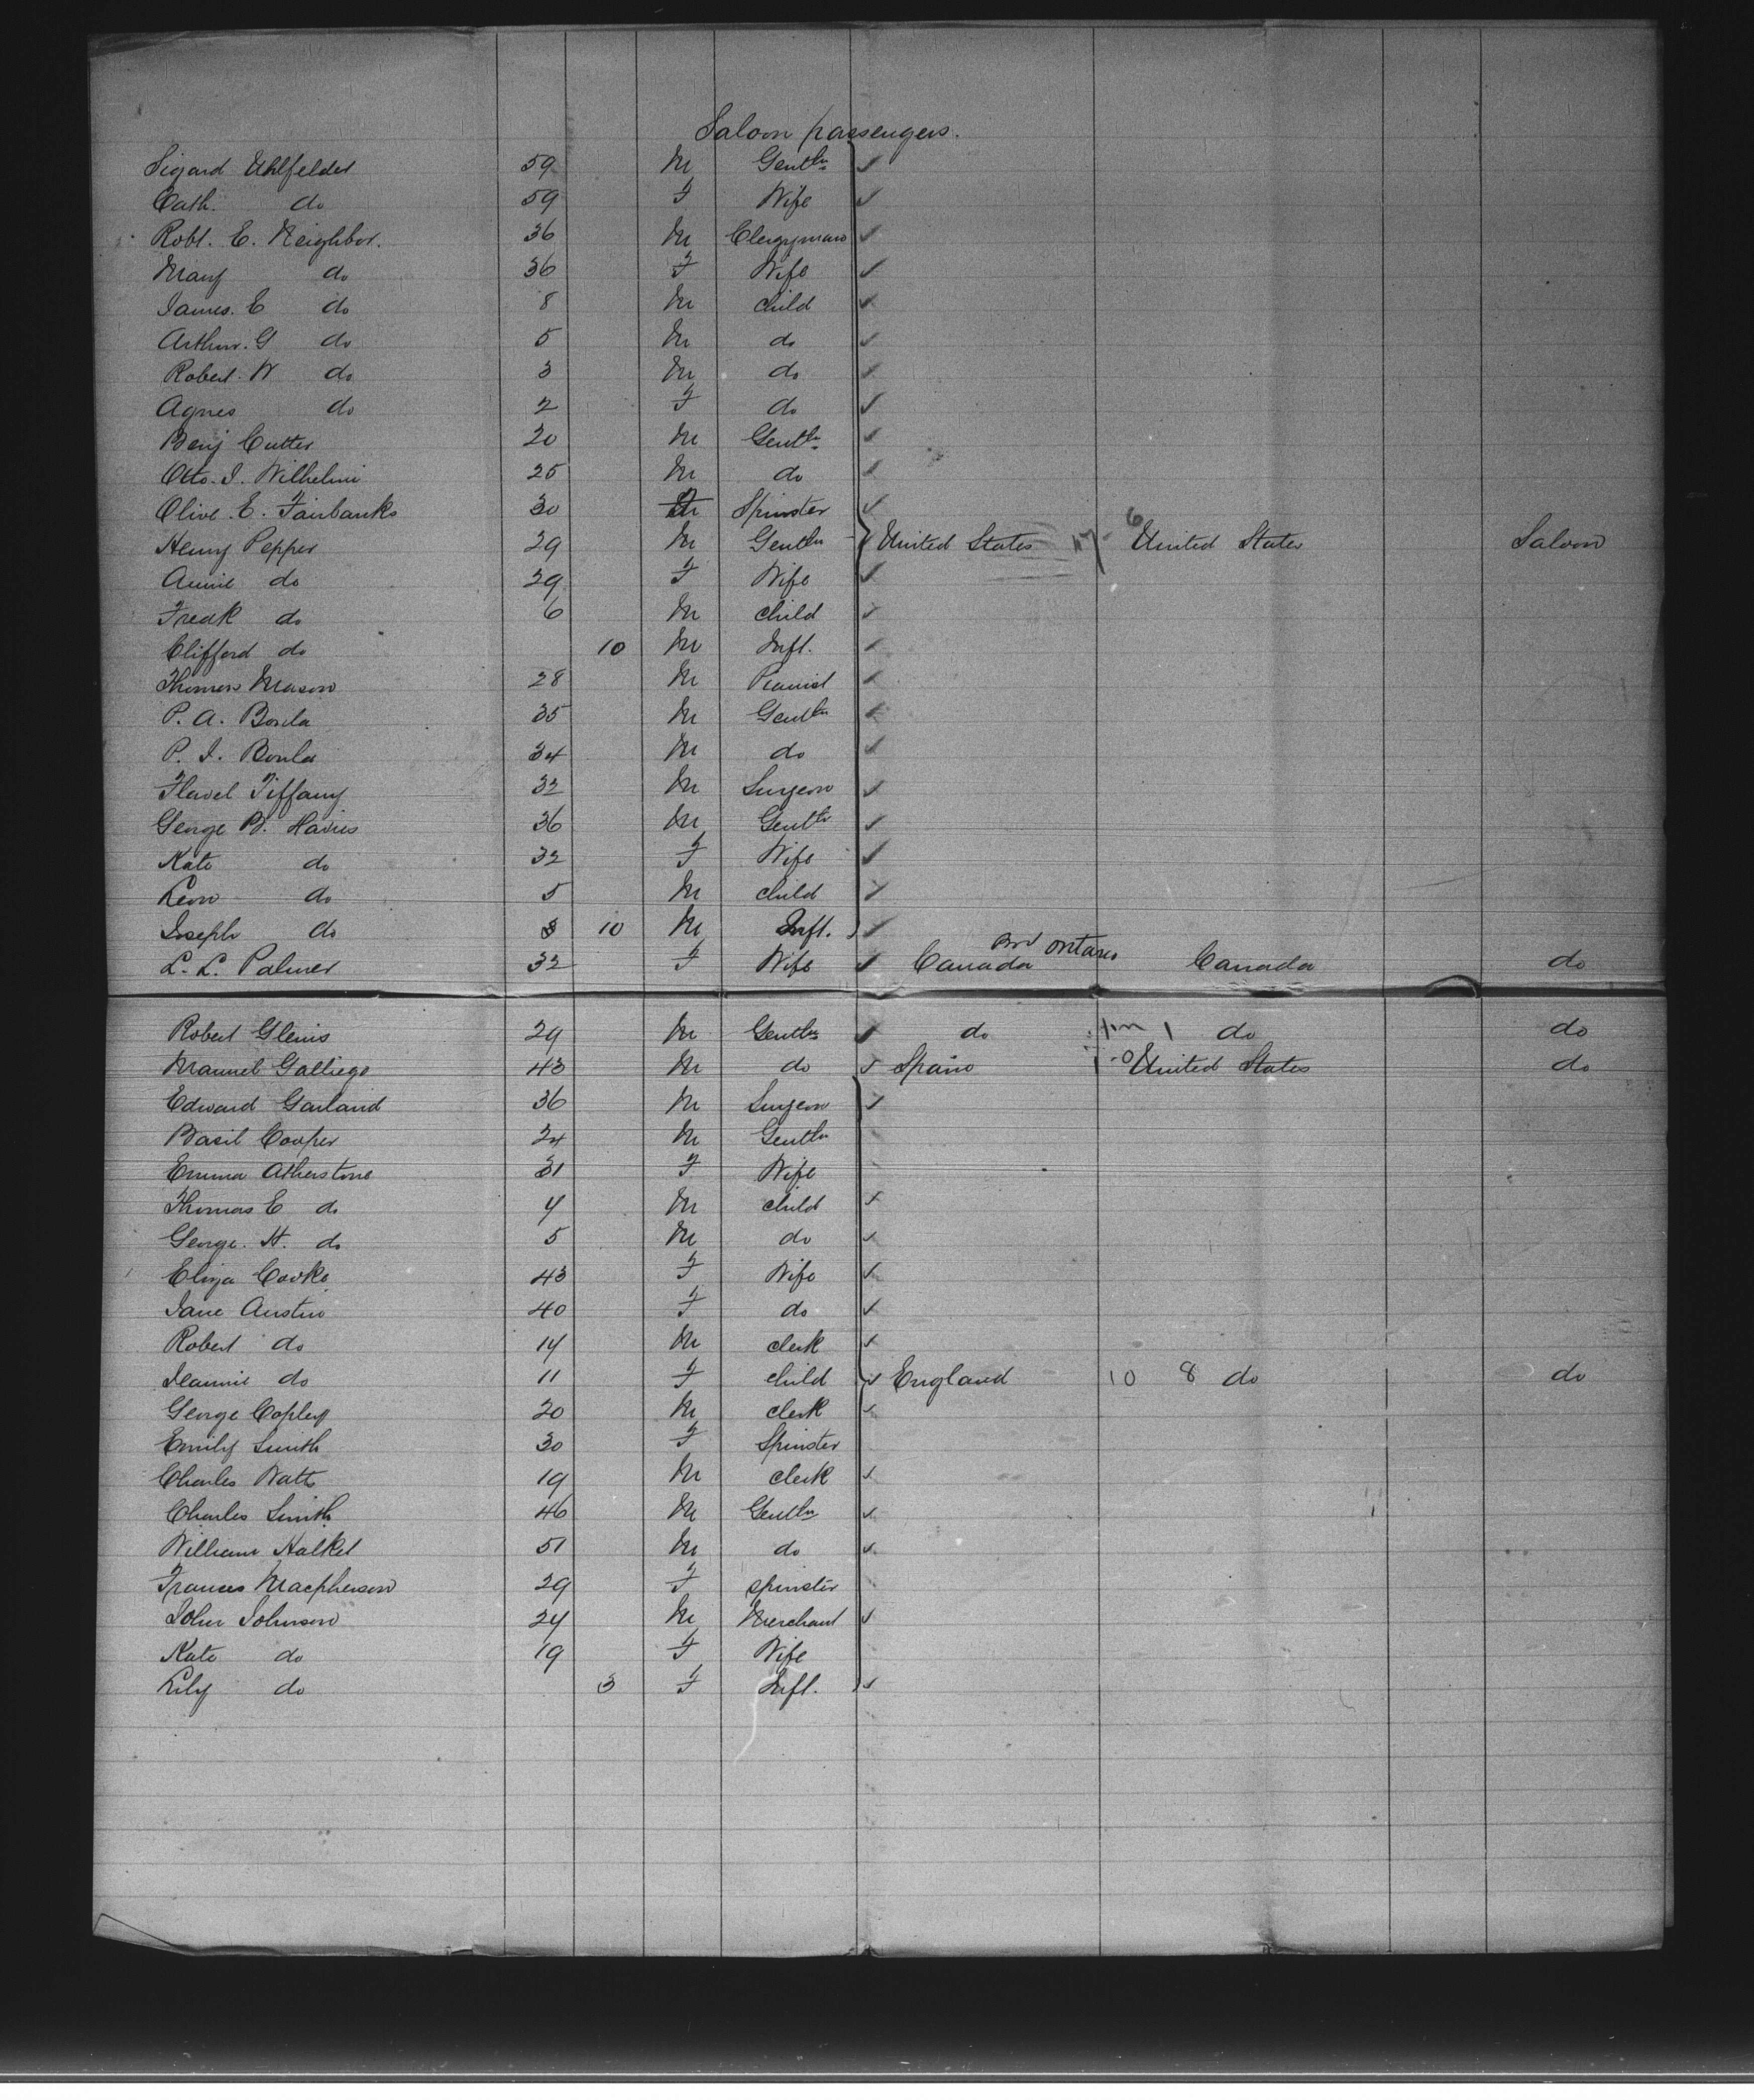 Saloon passengers.
Sigard Uhlfelder 59 M Gentln
Cath. do 59 F Wife
Robt. E. Neighbor. 36 M Clergyman
Mary do 36 F Wife
James. E do 8 M child
Arthur. G do 5 M do
Robert. W do 3 M do
Agnes do 2 F do
Benj Cutter 20 M Gentln
Otto. I. Wilhelmi 25 M do
Olive. E. Fairbanks 30 F Spinster
Henry Pepper 29 M Gentln United States 6 United States Saloon
Annie do 29 F Wife
Freak do 6 M child
Clifford do 10 M Inft.
Thomas Mason 28 M Pianist
P. A. 35 M Gentln
P. I. 34 M do
Flavel Tiffany 32 M Surgeon
George B. 36 M Gentln
Kate do 32 F Wife
Leon do 5 M child
Joseph do 10 M Inft.
L. L. Palmer 32 F Wife Canada Ontario Canada do
Robert 29 M Gentln do 1 do do
Manuel Galliego 43 M do Spain United States do
Edward Garland 36 M Surgeon
Basil Cooper 24 M Gentln
Emma Atherstone 31 F Wife
Thomas E do 4 M child
George. H. do 5 M do
Eliza Cooke 43 F Wife
Jane Austin 40 F do
Robert do 14 M clerk
Jeannie do 11 F child England 10 8 do do
George Copley 20 M clerk
Emily Smith 30 F Spinster
Charles Watts 19 M clerk
Charles Smith 46 M Gentln
William Halket 51 M do
Frances Macpherson 29 F spinster
John Johnson 24 M Merchant
Kate do 19 F Wife
Lily do 3 F Inft.